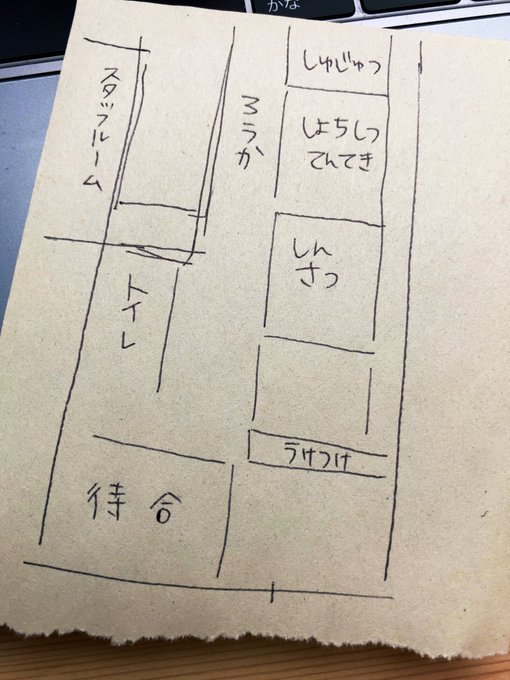 かな
しゅじゅつ
スタッフルーム
ろうか
しょちしつ
てんてき
しん
さつ
トイレ
うけつけ
待合